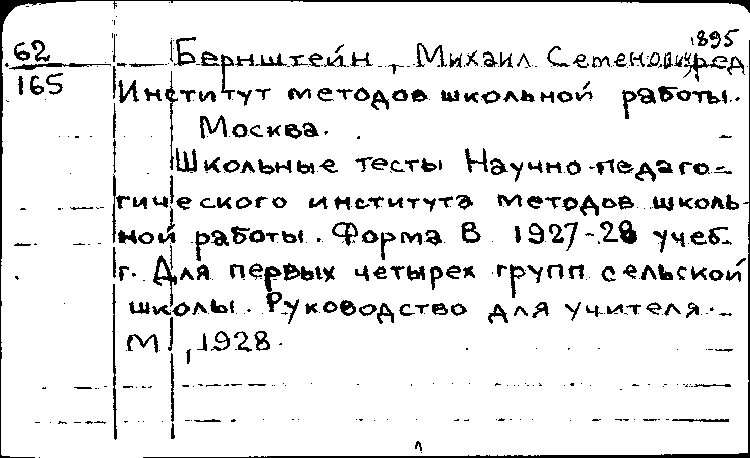 1895
62 Бернштейн, Михаил Семенович, ред
165 Институт методов школьной работы.
Москва.
Школьные тесты Научно-педаго-
гического института методов школь-
ной работы. Форма В 1927-28 учеб.
г. Для первых четырех групп сельской
школы. Руководство для учителя.
М., 1928.